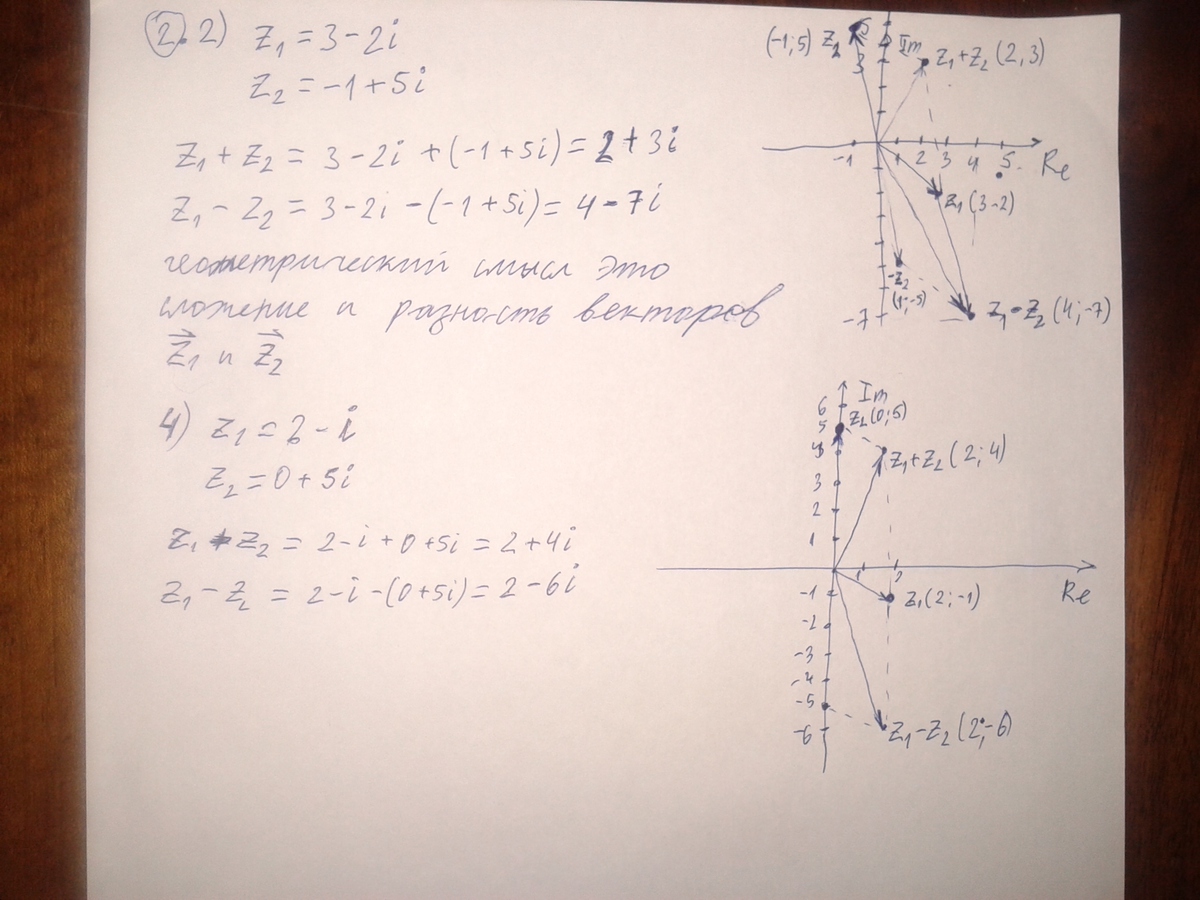 2. 2) z₁ = 3 - 2i
z₂ = -1 + 5i
z₁ + z₂ = 3 - 2i + (-1 + 5i) = 2 + 3i
z₁ - z₂ = 3 - 2i - (-1 + 5i) = 4 - 7i
геометрический смысл это
сложение и разность векторов
z₁ и z₂
(-1; 5) z₂
5
Im
3
z₁+z₂ (2, 3)
-1 1 2 3 4 5 Re
z₁ (3-2)
-z₂
(1; -5)
-7
z₁-z₂ (4; -7)
4) z₁ = 2 - i
z₂ = 0 + 5i
z₁ + z₂ = 2 - i + 0 + 5i = 2 + 4i
z₁ - z₂ = 2 - i - (0 + 5i) = 2 - 6i
Im
6
5 z₂ (0; 5)
4
z₁+z₂ (2; 4)
3
2
1
1 2
Re
-1
z₁ (2; -1)
-2
-3
-4
-5
-6
z₁-z₂ (2; -6)